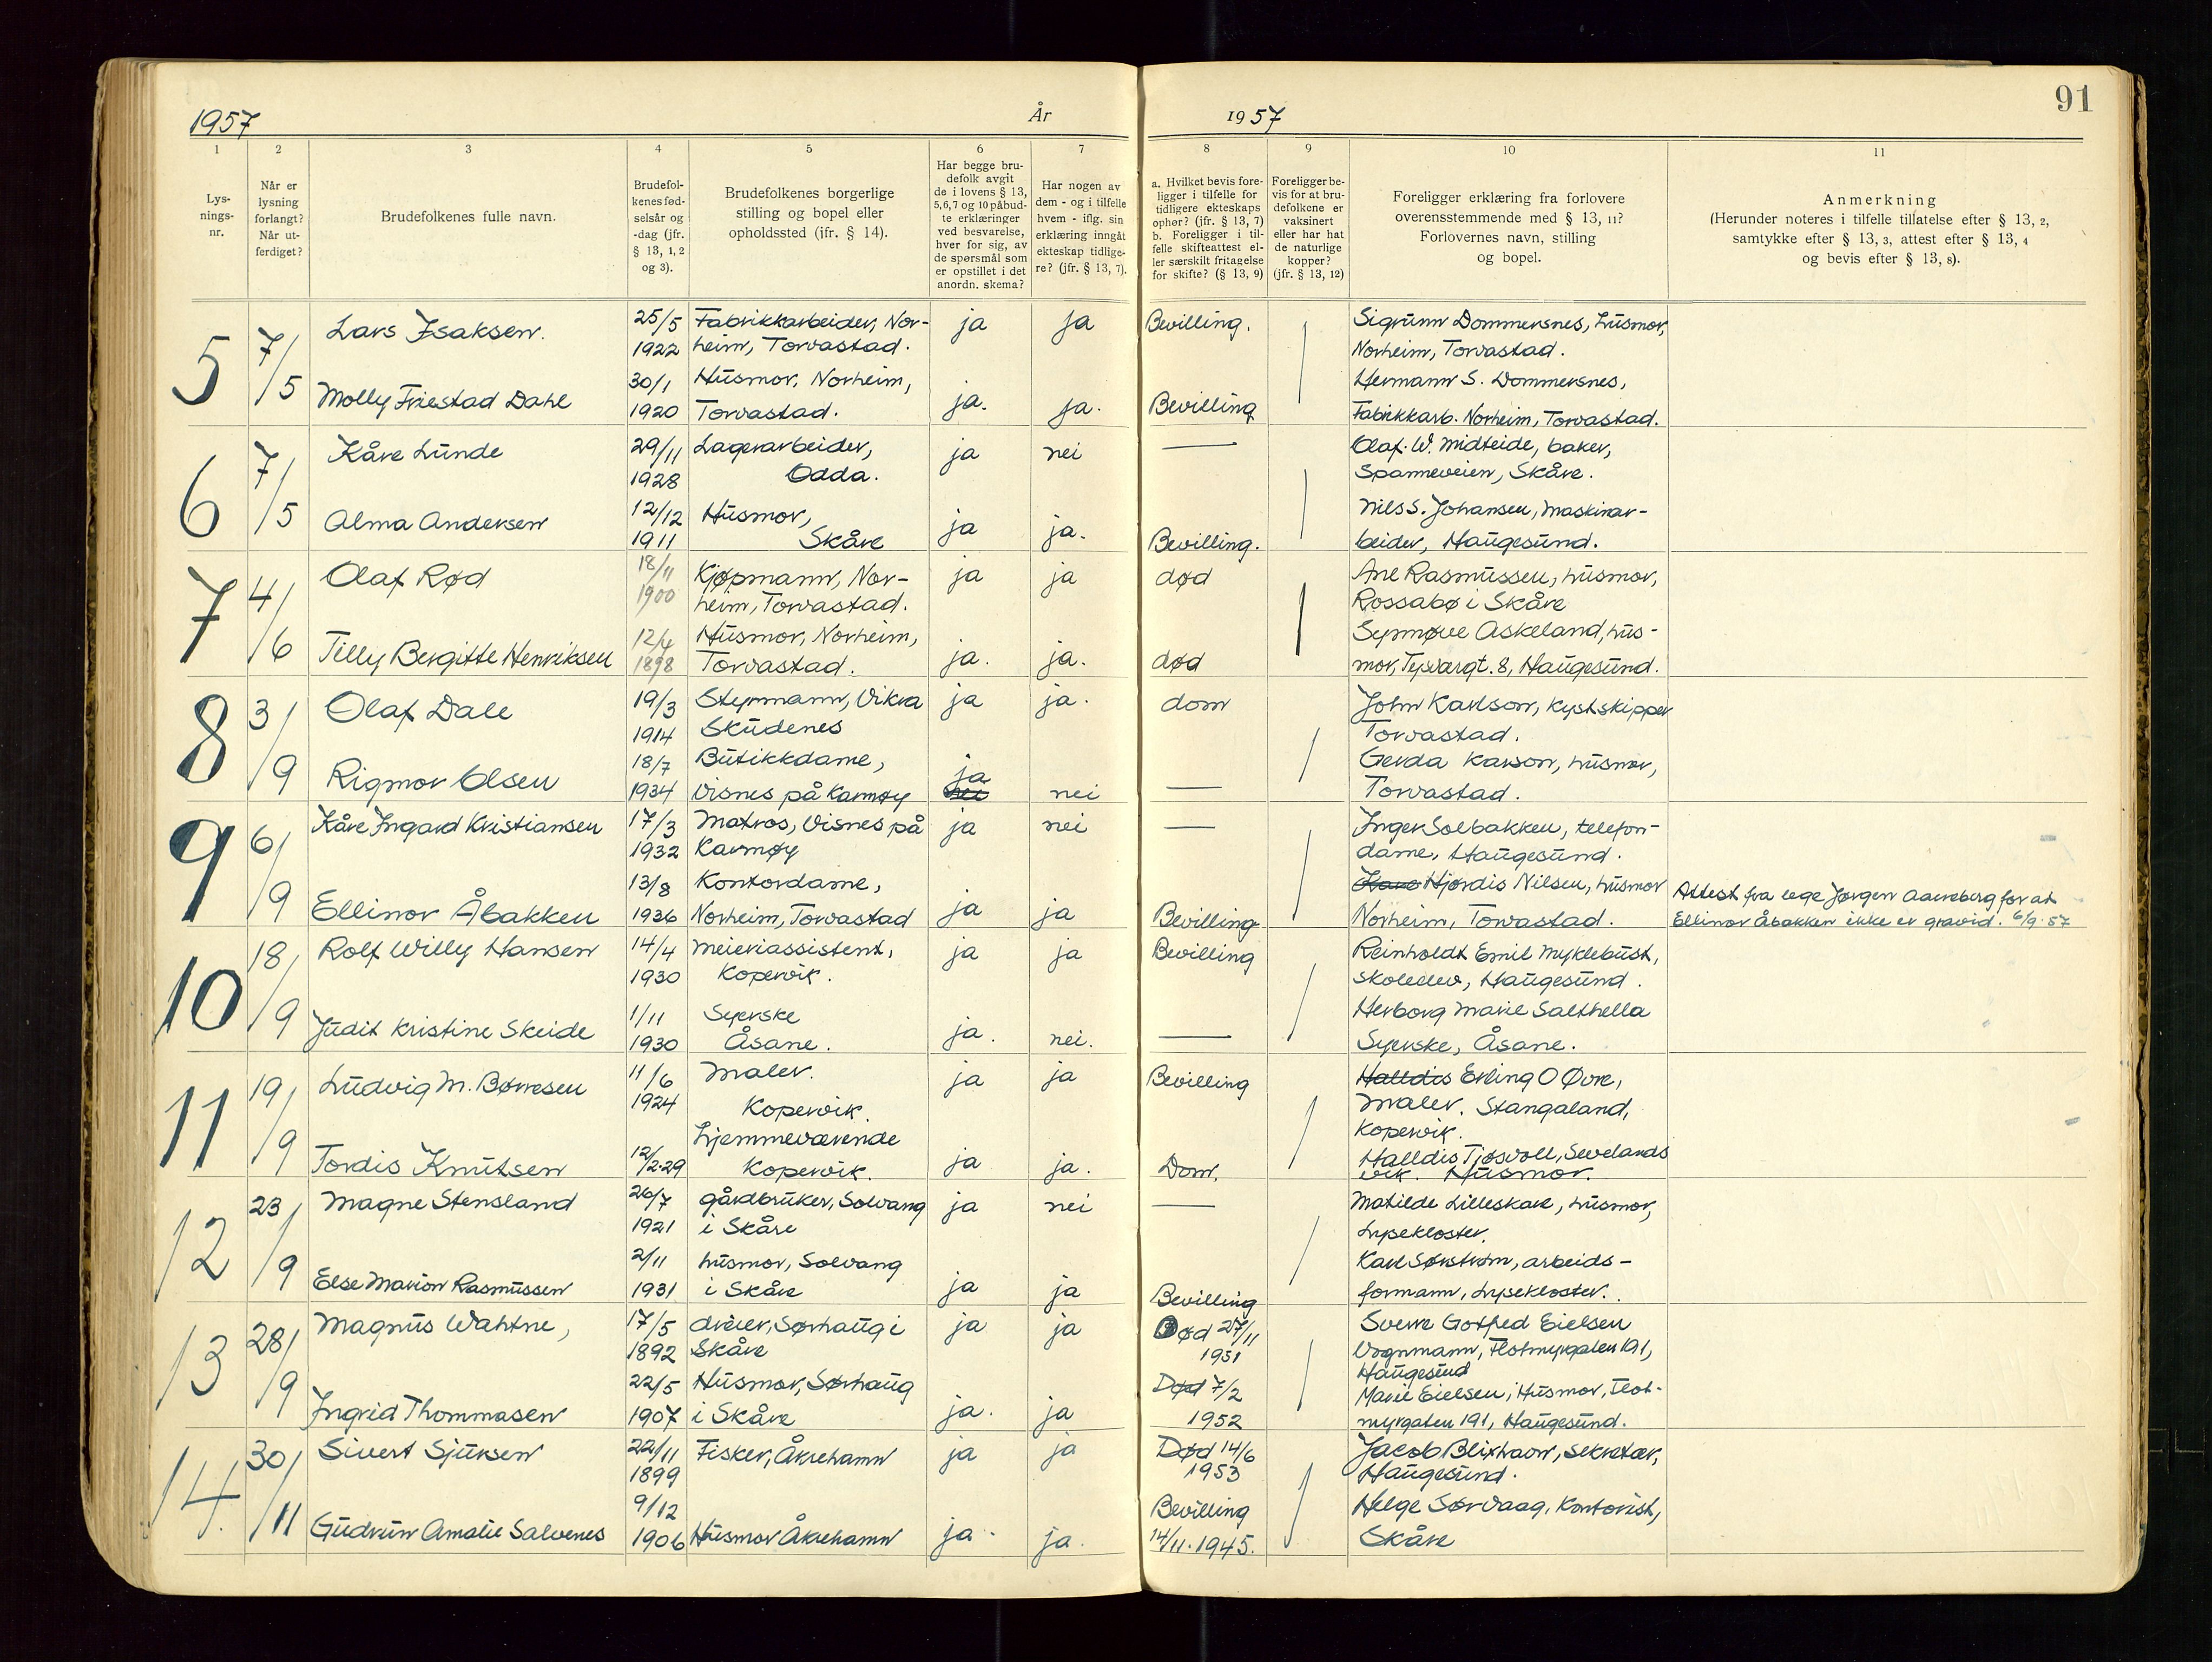 1957
År
1957
91
1
2
3
4
5
6
7
8
9
10
11
Lys-
nings-
nr.
Når er
lysning
forlangt?
Når ut-
ferdiget?
Brudefolkenes fulle navn.
Brudefol-
kenes fød-
selsår og
-dag (jfr.
§ 13, 1, 2
og 3).
Brudefolkenes borgerlige
stilling og bopel eller
opholdssted (jfr. § 14).
Har begge bru-
defolk avgit
de i lovens § 13,
5,6,7 og 10 påbud-
te erklæringer
ved besvarelse,
hver for sig, av
de spørsmål som
er opstillet i det
anordn. skema?
Har nogen av
dem - og i tilfelle
hvem - iflg. sin
erklæring inngåt
ekteskap tidlige-
re? (jfr. § 13, 7).
a. Hvilket bevis fore-
ligger i tilfelle for
tidligere ekteskaps
ophør? (jfr. § 13, 7)
b. Foreligger i til-
felle skifteattest el-
ler særskilt fritagelse
for skifte? (§ 13, 9)
Foreligger be-
vis for at bru-
defolkene er
vaksinert
eller har hat
de naturlige
kopper?
(jfr. § 13, 12)
Foreligger erklæring fra forlovere
overensstemmende med § 13, 11?
Forlovernes navn, stilling
og bopel.
Anmerkning
(Herunder noteres i tilfelle tillatelse efter § 13, 2,
samtykke efter § 13, 3, attest efter § 13, 4
og bevis efter § 13, 8).
5
7/5
Lars Isaksen.
25/5
1922
Fabrikkarbeider, Nor-
heim, Torvastad.
ja
ja
Bevilling.
Sigrunn Dommersnes, husmor,
Norheim, Torvastad.
Molly Friestad Dahl
30/1
1920
Husmor, Norheim,
Torvastad.
ja.
ja.
Bevilling
Hermann S. Dommersnes,
Fabrikkarb. Norheim, Torvastad.
6
7/5
Kåre Lunde
29/11
1928
Lagerarbeider,
Odda.
ja
nei
Olaf. W. Midteide, baker,
Spanneveien, Skåre.
Alma Andersen
12/12
1911
Husmor,
Skåre
ja
ja.
Bevilling.
Nils S. Johansen, maskinar-
beider, Haugesund.
7
4/6
Olaf Rød
18/11
1900
Kjøpmann, Nor-
heim, Torvastad.
ja
ja
død
Ane Rasmussen, husmor,
Rossabø i Skåre
Tilly Bergitte Henriksen
12/4
1898
Husmor, Norheim,
Torvastad.
ja.
ja.
død
Synnøve Askeland, hus-
mor, Tysvargt. 8, Haugesund.
8
3/9
Olaf Dale
19/3
1914
Styrmann, Vikra
Skudenes
ja
ja.
dom
John Karlson, kystskipper
Torvastad.
Rigmor Olsen
18/7
1934
Butikkdame,
Visnes på Karmøy
ja
nei
nei
Gerda Karson, husmor,
Torvastad.
9
6/9
Kåre Ingard Kristiansen
17/3
1932
Matros, Visnes på
Karmøy
ja
nei
Inger Solbakken, telefon-
dame, Haugesund.
Ellinor Åbakken
13/8
1936
Kontordame,
Norheim, Torvastad
ja
ja
Bevilling
Hjørdis Nilsen, husmor
Norheim, Torvastad.
Attest fra lege Jørgen Aareberg for at
Ellinor Åbakken ikke er gravid. 6/9-57
10
18/9
Rolf Willy Hansen
14/4
1930
Meieriassistent,
Kopervik.
ja
ja
Bevilling
Reinholdt Emil Myklebust,
skoleelev, Haugesund.
Judit Kristine Skeide
1/11
1930
Syerske
Åsane.
ja.
nei.
Herborg Marie Salthella
Syerske, Åsane.
11
19/9
Ludvig M. Børresen
11/6
1924
Maler.
Kopervik.
ja
ja
Bevilling
Halldis Erling O Øvre,
Maler. Stangaland,
Kopervik.
Tordis Knutsen
12/2-29
hjemmeværende
Kopervik.
ja
ja.
Dom.
Halldis Tjøsvoll, Sevelands
vik. Husmor.
12
23/9
Magne Stensland
26/7
1921
gårdbruker, Solvang
i Skåre
ja
nei
Matilde Lilleskare, husmor,
Lysekloster.
Else Marion Rasmussen
2/11
1931
husmor, Solvang
i Skåre
ja
ja
Bevilling
Karl Sørstrøm, arbeids-
formann, Lysekloster.
13
28/9
Magnus Wahtne,
17/5
1892
dreier, Sørhaug i
Skåre
ja
ja
Død 27/11
1951
Sverre Gotfred Eielsen
Vognmann, Flotmyrgaten 191,
Haugesund
Ingrid Thommasen
22/5
1907
Husmor, Sørhaug
i Skåre
ja.
ja
Død 7/2
1952
Marie Eielsen, Husmor, Flot-
myrgaten 191, Haugesund.
14.
30/11
Sivert Sjursen
22/11
1899
Fisker, Åkrehamn
ja
ja
Død 14/6
1953
Jacob Blixhavn, sekretær,
Haugesund.
Gudrun Amalie Salvenes
9/12
1906
Husmor Åkrehamn
ja.
ja.
Bevilling
14/11.1945.
Helge Sørvaag, Kontorist,
Skåre